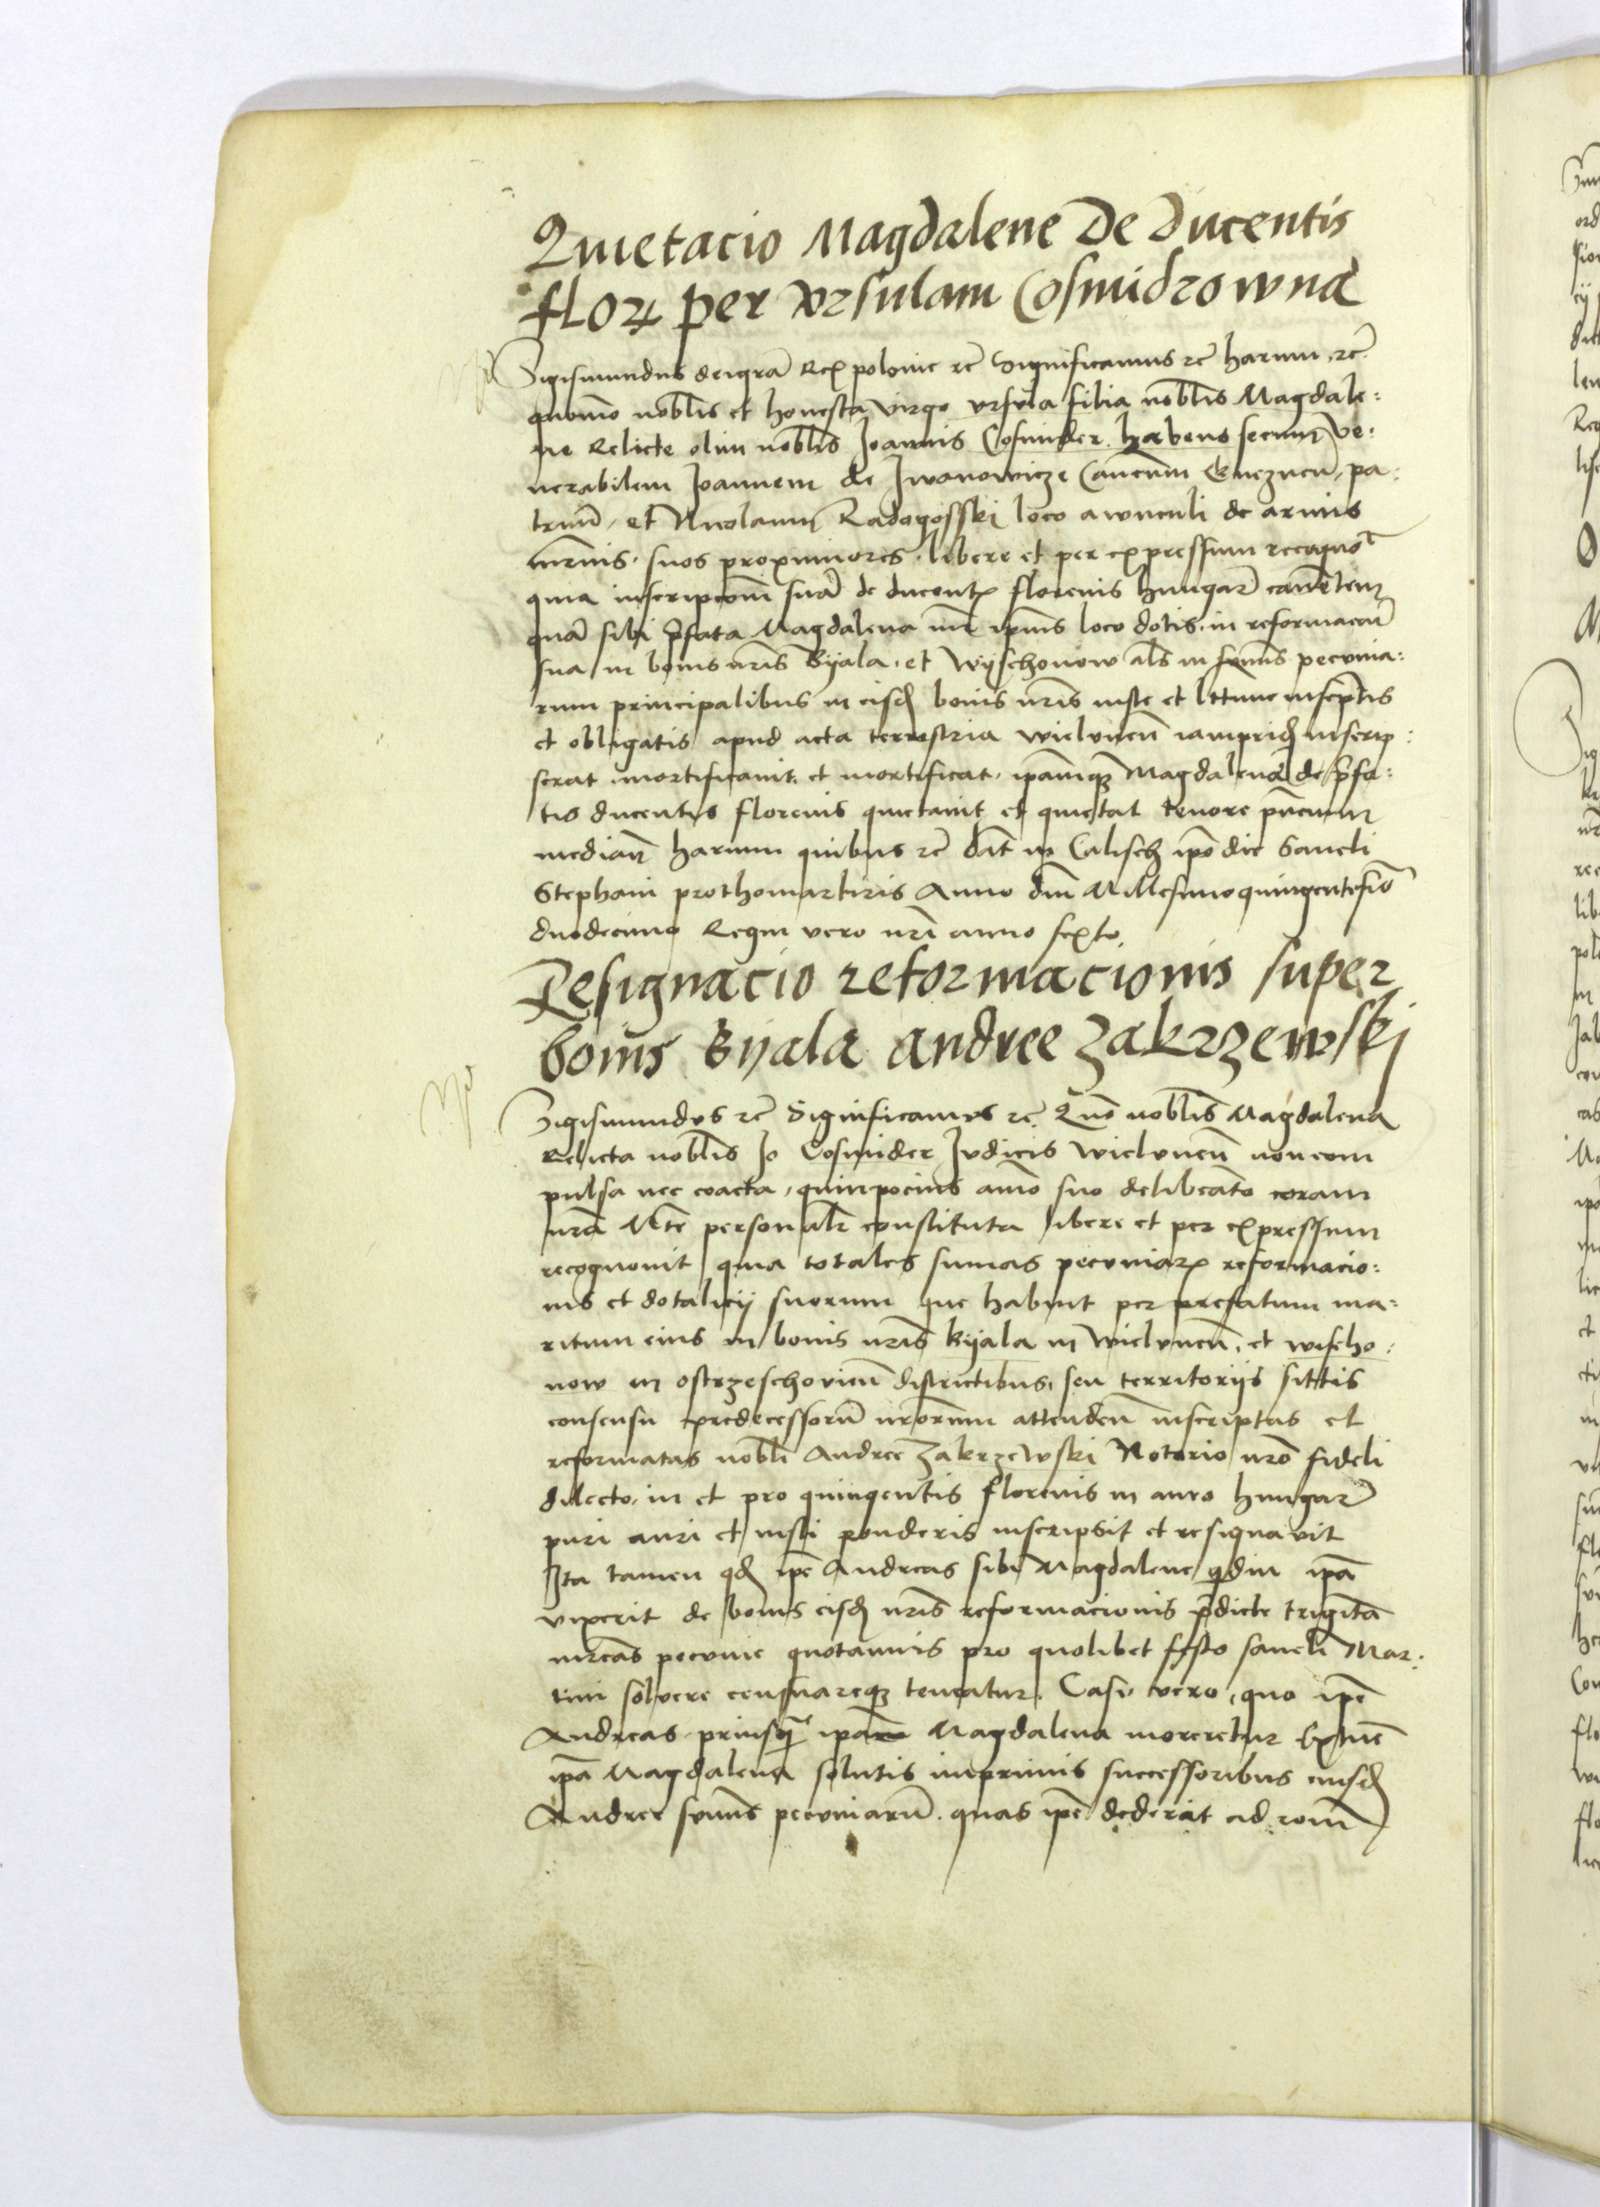 Quietacio Magdalene De Ducentis
flor per Vrsulam Cosmidrowna
Sigismundus dei gra Rex polonie rc Significamus rc harum rc
quomo noblis et honesta virgo vrsula filia noblis Magdale:
ne Relicte olim noblis Joannis Cosmider habens secum ve:
nerabilem Joannem de Jwanowicze Canonicum Gneznen pa:
truu et Nicolaum Radogosski loco awnculi de armis
suos proximiores libere et per expressum recognot
quia inscripcom sua de ducentis florenis hungar
qua sibi prefata Magdalena loco dotis in reformacem
sua in bonis nris Byala et Wyschonow als in summs pecunia:
rum principalibus in eisdem bonis nris iuste et inscriptis
et obligatis apud acta terrestria wielunen iampridem inscrip:
serat mortificauit et mortificat ipamque Magdalena de prefa:
tis ducentis florenis quietauit et quietat tenore pncium
median harum quibus rc dat in Calisch ipo die Sancti
Stephani prothomartiris Anno dni Millesimoquingentesimo
duodecimo Regni vero nri anno sexto
Resignacio reformacionis super
bonis Byala andree Zakrzewski
Sigismundus rc Significamus rc Quo noblis Magdalena
Relicta noblis Jo Cosmider Judicis wielunen non com
pulsa nec coacta quinpocius aimo suo delibeato coram
nra Mte personalr constituta libere et per expressum
recognouit quia totales sumas pecuniar reformacio:
nis et dotalicij suorum que habuit per prefatum ma:
ritum eius in bonis nris Byala in wielunen et wischo:
now in ostrzeschouien districtibus seu territorijs sittis
consensu predecessoru nrorum attenden inscriptas et
reformatas nobli Andree Zakrzewski Notario nro fideli
dilecto in et pro quingentis florenis in auro hungar
puri auri et iusti ponderis inscripsit et resignauit
Ita tamen qd ipe Andreas sibi Magdalene qdiu ipa
vixerit de bonis eisdem nris reformacionis predicte triginta
mrcas pecunie quotannis pro quolibet festo sancti Mar:
tini soluere censuareque teneatur Casu vero quo ipe
Andreas priusq ipa Magdalena moreretur Extunc
ipa Magdalena solutis inprimis successoribus eiusdem
Andree summs pecuniaru quas ipe dederat ad rom